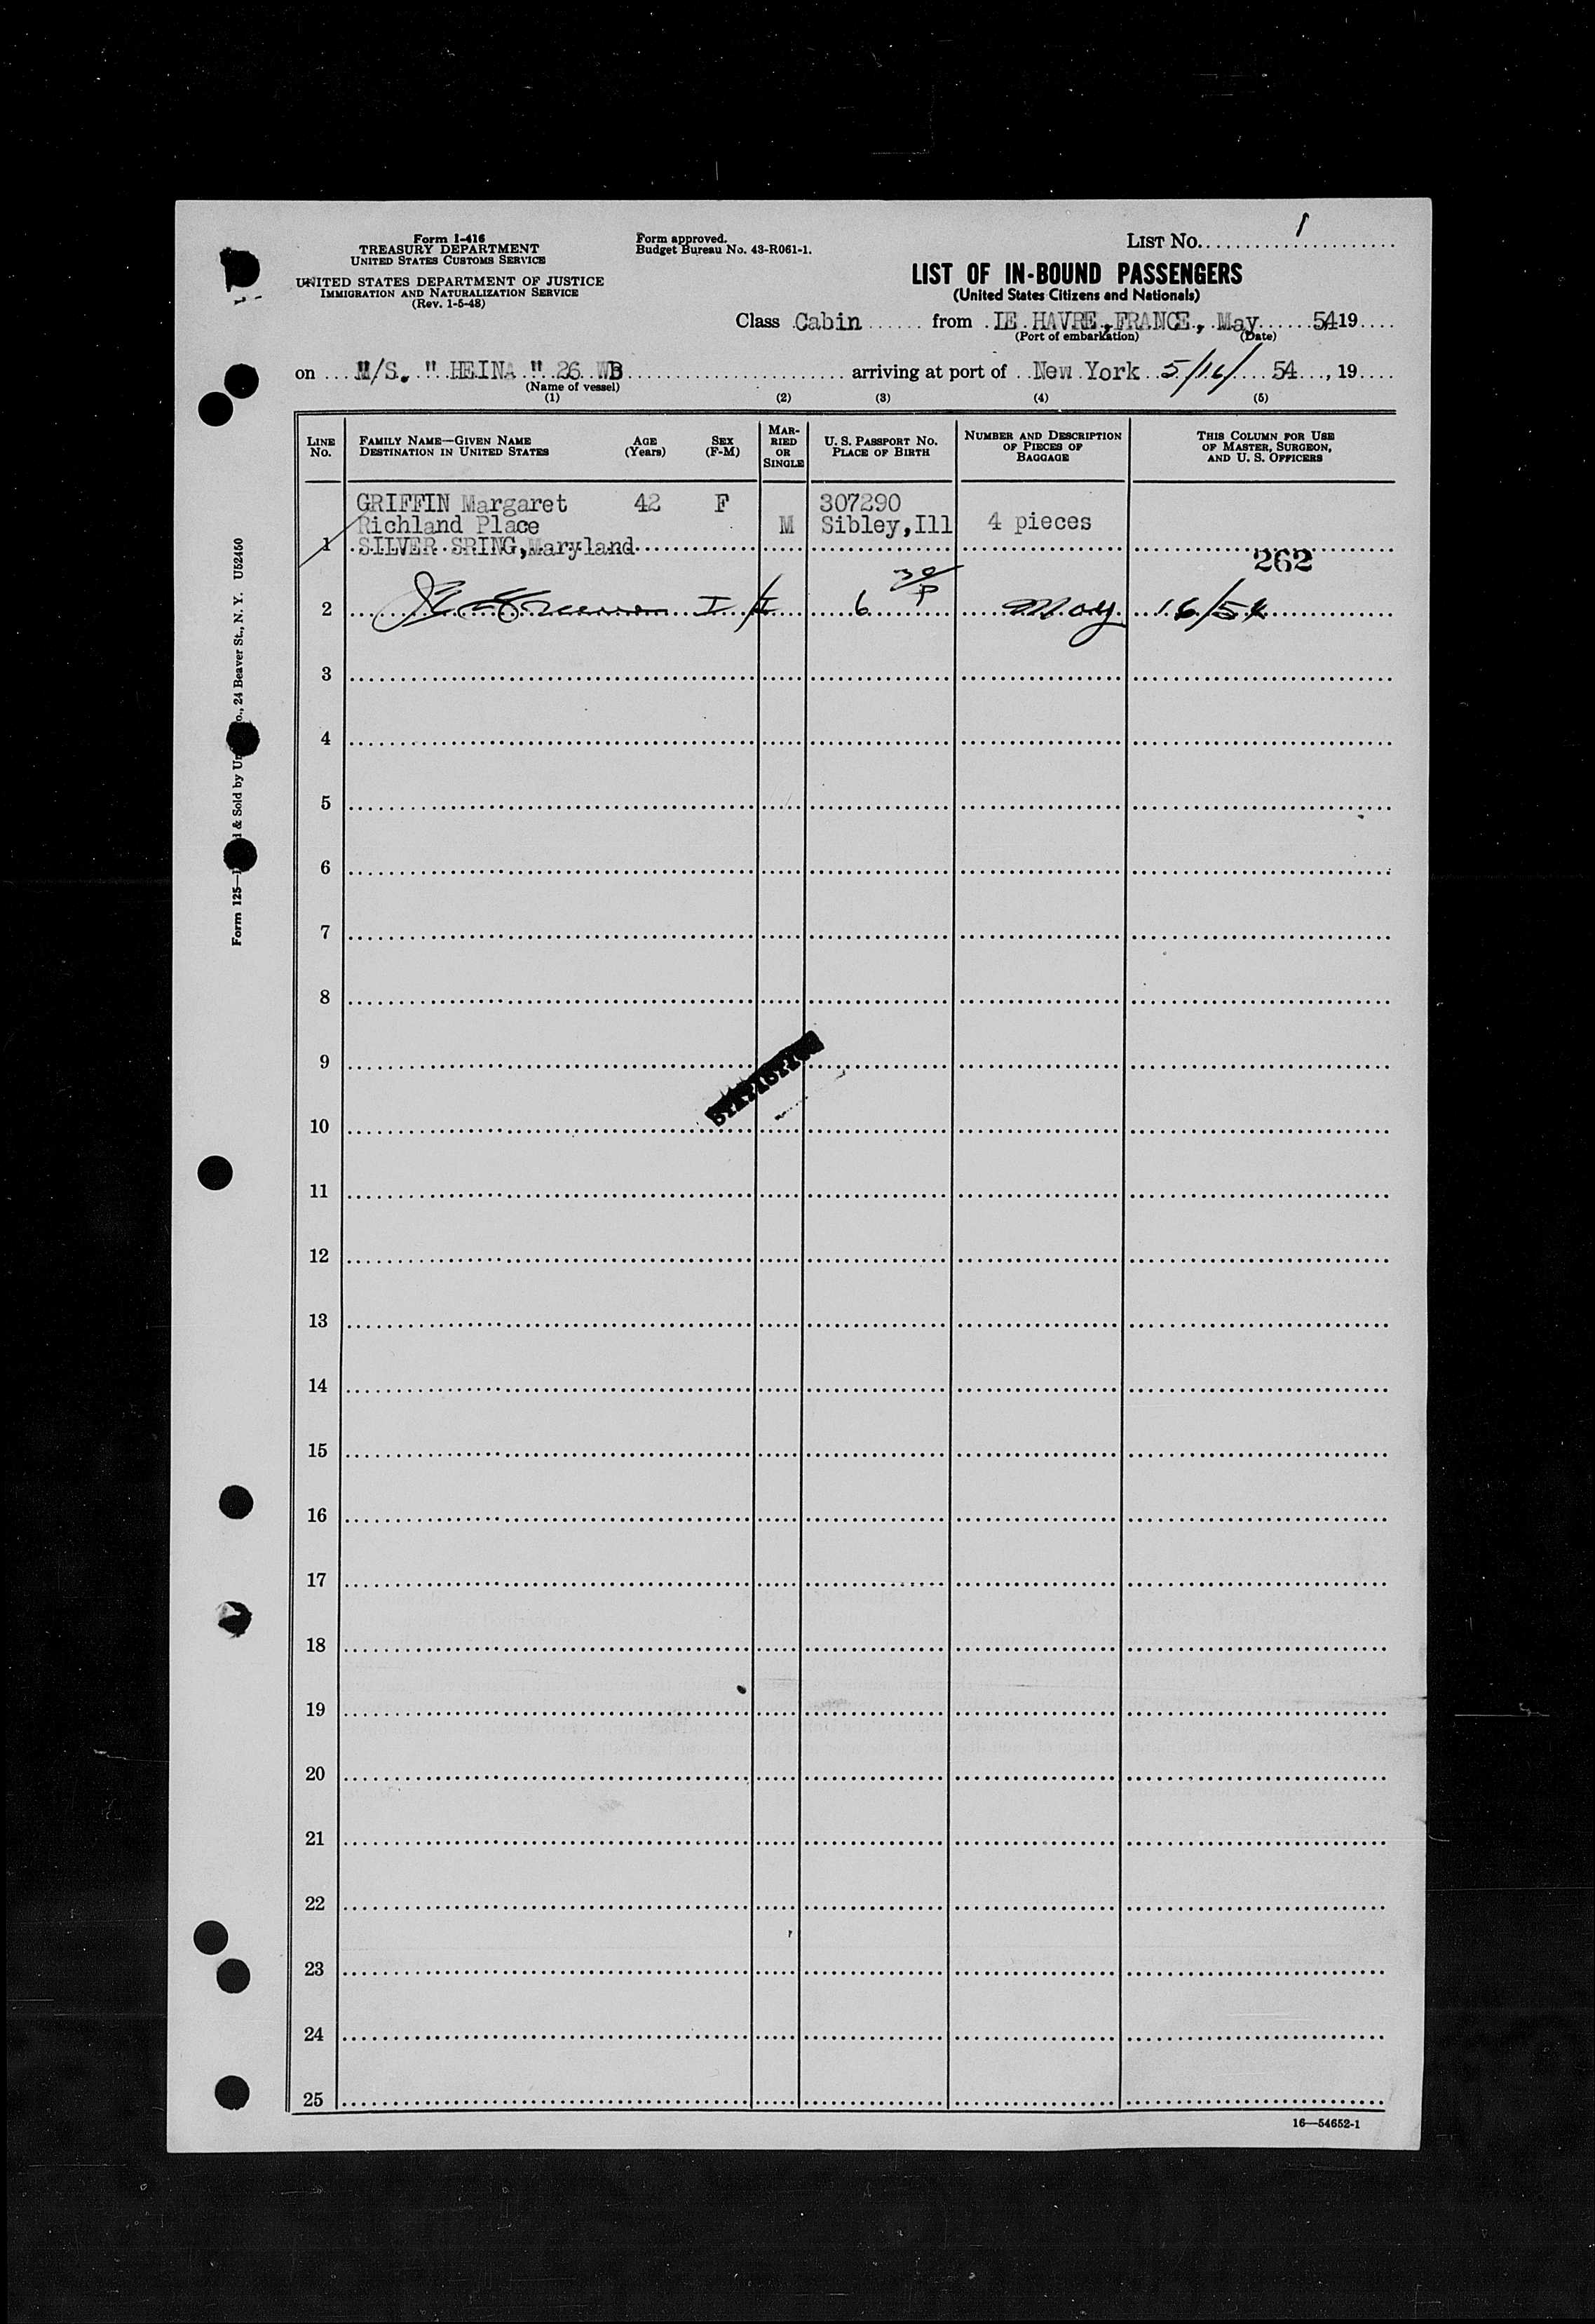 Form I-416
TREASURY DEPARTMENT
UNITED STATES CUSTOMS SERVICE
UNITED STATES DEPARTMENT OF JUSTICE
IMMIGRATION AND NATURALIZATION SERVICE
(Rev. 1-5-48)
Form approved.
Budget Bureau No. 43-R061-1.
LIST No. 1
LIST OF IN-BOUND PASSENGERS
(United States Citizens and Nationals)
Class Cabin from LE HAVRE, FRANCE, May 5419
(Port of embarkation) (Date)
on M/S. " HEINA " 26 WB arriving at port of New York 5/16/ 54, 19
(Name of vessel)
(1) (2) (3) (4) (5)
LINE No.
FAMILY NAME—GIVEN NAME
DESTINATION IN UNITED STATES
AGE (Years)
SEX (F-M)
MARRIED OR SINGLE
U. S. PASSPORT NO.
PLACE OF BIRTH
NUMBER AND DESCRIPTION OF PIECES OF BAGGAGE
THIS COLUMN FOR USE OF MASTER, SURGEON, AND U. S. OFFICERS
GRIFFIN Margaret 42 F 307290
Richland Place M Sibley,Ill 4 pieces
1 SILVER SRING,Maryland
262
2 I/I 6 30/P May 16/54
3
4
5
6
7
8
9
10
11
12
13
14
15
16
17
18
19
20
21
22
23
24
25
16—54652-1
Form 125— & Sold by , 24 Beaver St., N. Y. U52460